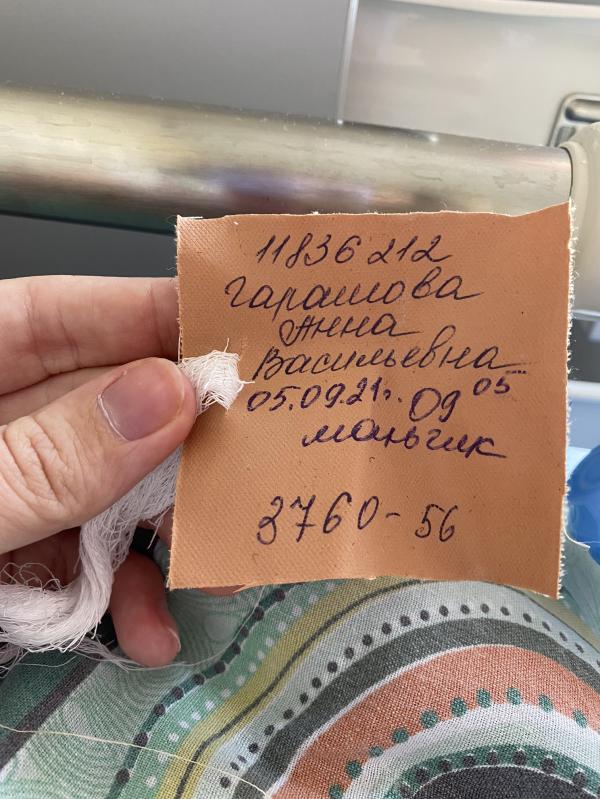 11836212
Гарашова
Анна
Васильевна
05.09.21г. 09 05
мальчик
3760-56